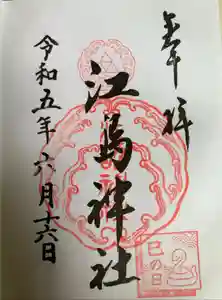 奉拝
江島神社
令和五年六月十六日
巳の日